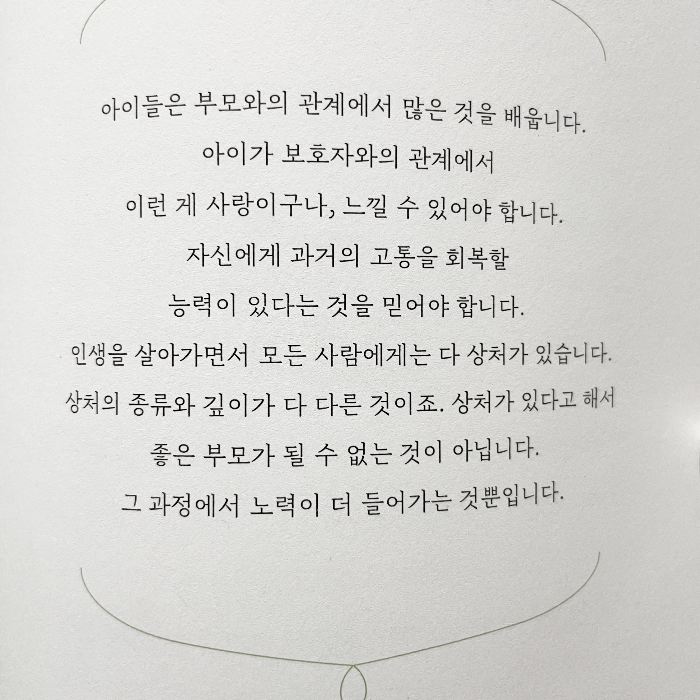 아이들은 부모와의 관계에서 많은 것을 배웁니다.
아이가 보호자와의 관계에서
이런 게 사랑이구나, 느낄 수 있어야 합니다.
자신에게 과거의 고통을 회복할
능력이 있다는 것을 믿어야 합니다.
인생을 살아가면서 모든 사람에게는 다 상처가 있습니다.
상처의 종류와 깊이가 다 다른 것이죠. 상처가 있다고 해서
좋은 부모가 될 수 없는 것이 아닙니다.
그 과정에서 노력이 더 들어가는 것뿐입니다.